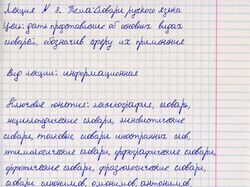 Лекция № 8. Тема: Словари русского языка
Цель: дать представление об основных видах
словарей, обозначив сферу их применения
Вид лекции: информационная
Ключевые понятия: лексикография, словари,
энциклопедические словари, лингвистические
словари, толковые словари иностранных слов,
этимологические словари, орфографические словари,
орфоэпические словари, фразеологические словари,
словари синонимов, омонимов, антонимов,